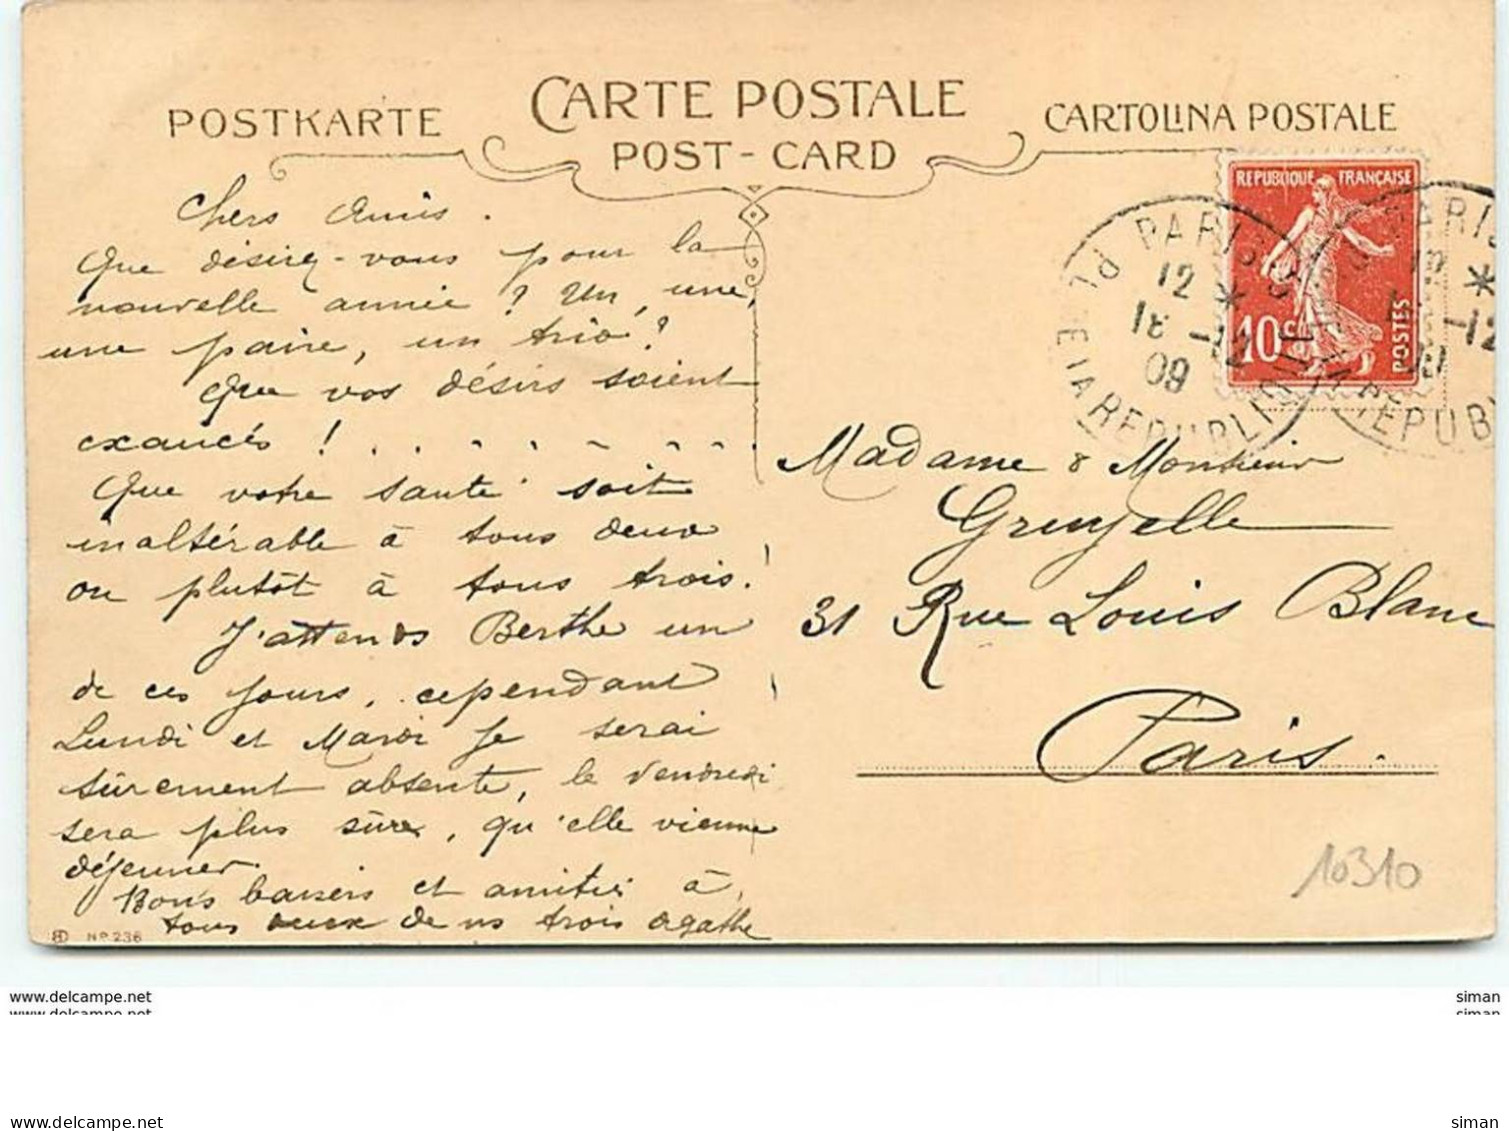 CARTE POSTALE
POSTKARTE
CARTOLINA POSTALE
POST-CARD
Chers Amis.
Que désirez-vous pour la
nouvelle année ? Un, une,
une paire, un trio ?
Que vos désirs soient
exaucés ! . . . . . . .
Que votre santé soit
inaltérable à tous deux
ou plutôt à tous trois.
J'attends Berthe un
de ces jours, cependant
Lundi et Mardi je serai
sûrement absente, le Vendredi
sera plus sûre, qu'elle vienne
déjeuner.
Bons baisers et amitiés à
tous deux de ns trois Agathe
No. 236
REPUBLIQUE FRANÇAISE
10c
POSTES
PARIS
12 *
18 -12
09
PL DE LA REPUBLIQUE
PARIS
*
-12
REPUB
Madame & Monsieur
Gruyelle
31 Rue Louis Blanc
Paris.
10310
www.delcampe.net
siman
www.delcampe.net
siman
www.delcampe.net
siman